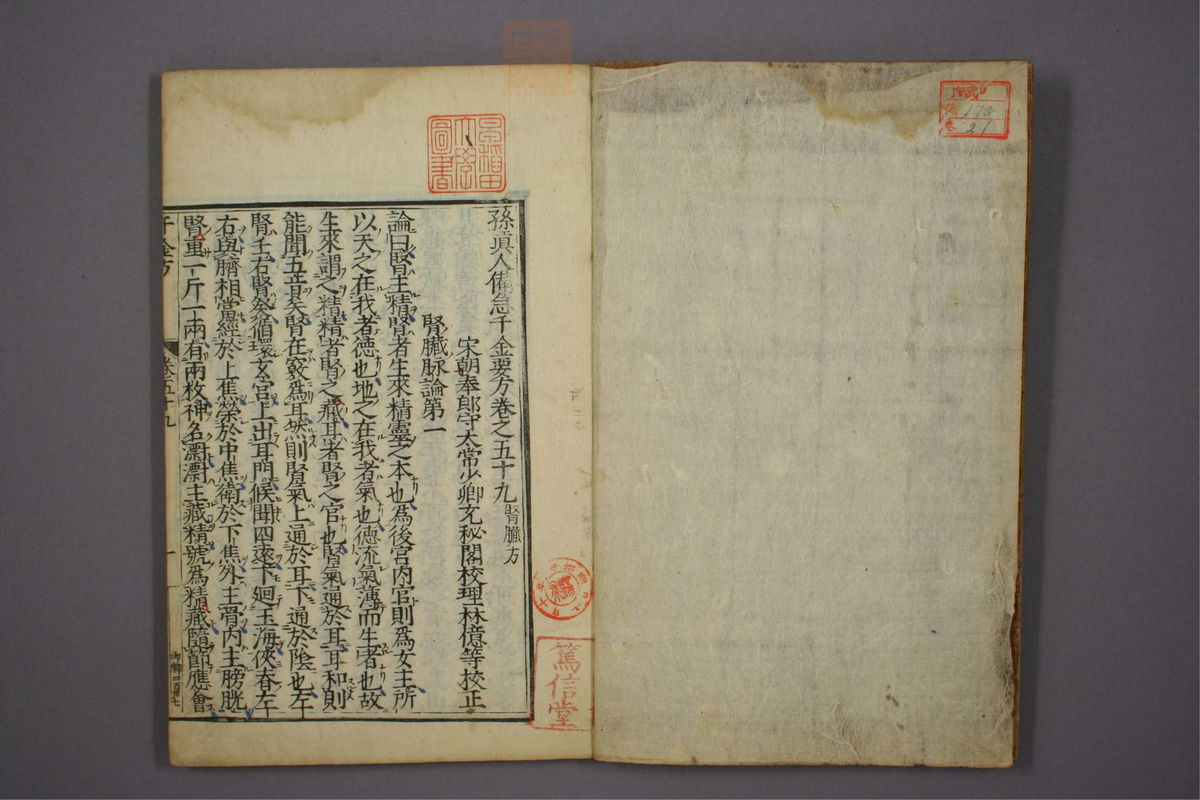 孫眞人備急千金要方卷之五十九 腎臟方
宋朝奉郎守太常少卿充秘閣校理林億等校正
腎臟脉論第一
論曰腎主精腎者生來精靈之本也爲後宮内官則爲女主所
以天之在我者德也地之在我者氣也德流氣薄而生者也故
生來謂之精精者腎之藏耳者腎之官也腎氣通於耳耳和則
能聞五音矣腎在竅爲耳然則腎氣上通於耳下通於陰也左
腎壬右腎癸循環玄宮上出耳門候聞四遠下廻玉海俠脊左
右與臍相當經於上焦榮於中焦衛於下焦外主骨内主膀胱
腎重一斤一兩有兩枚神名𣿖𣿖主藏精號爲精藏隨節應會
千金方
卷五十九
一
早稲田
大學
圖書
篤信堂
175
21